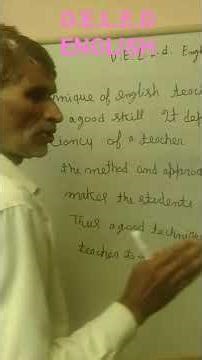 D.E.L.E.D
ENGLISH
D.E.L.E.d. Engl
nique of english teac
a good skill. It dep
ciency of a teacher
the method and approac
makes the students
Thus a good technique
teacher to